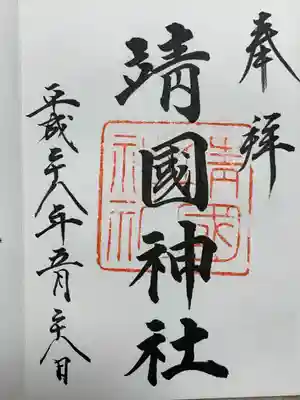 奉拝
靖國神社
平成二十八年五月二十八日
靖国
神社